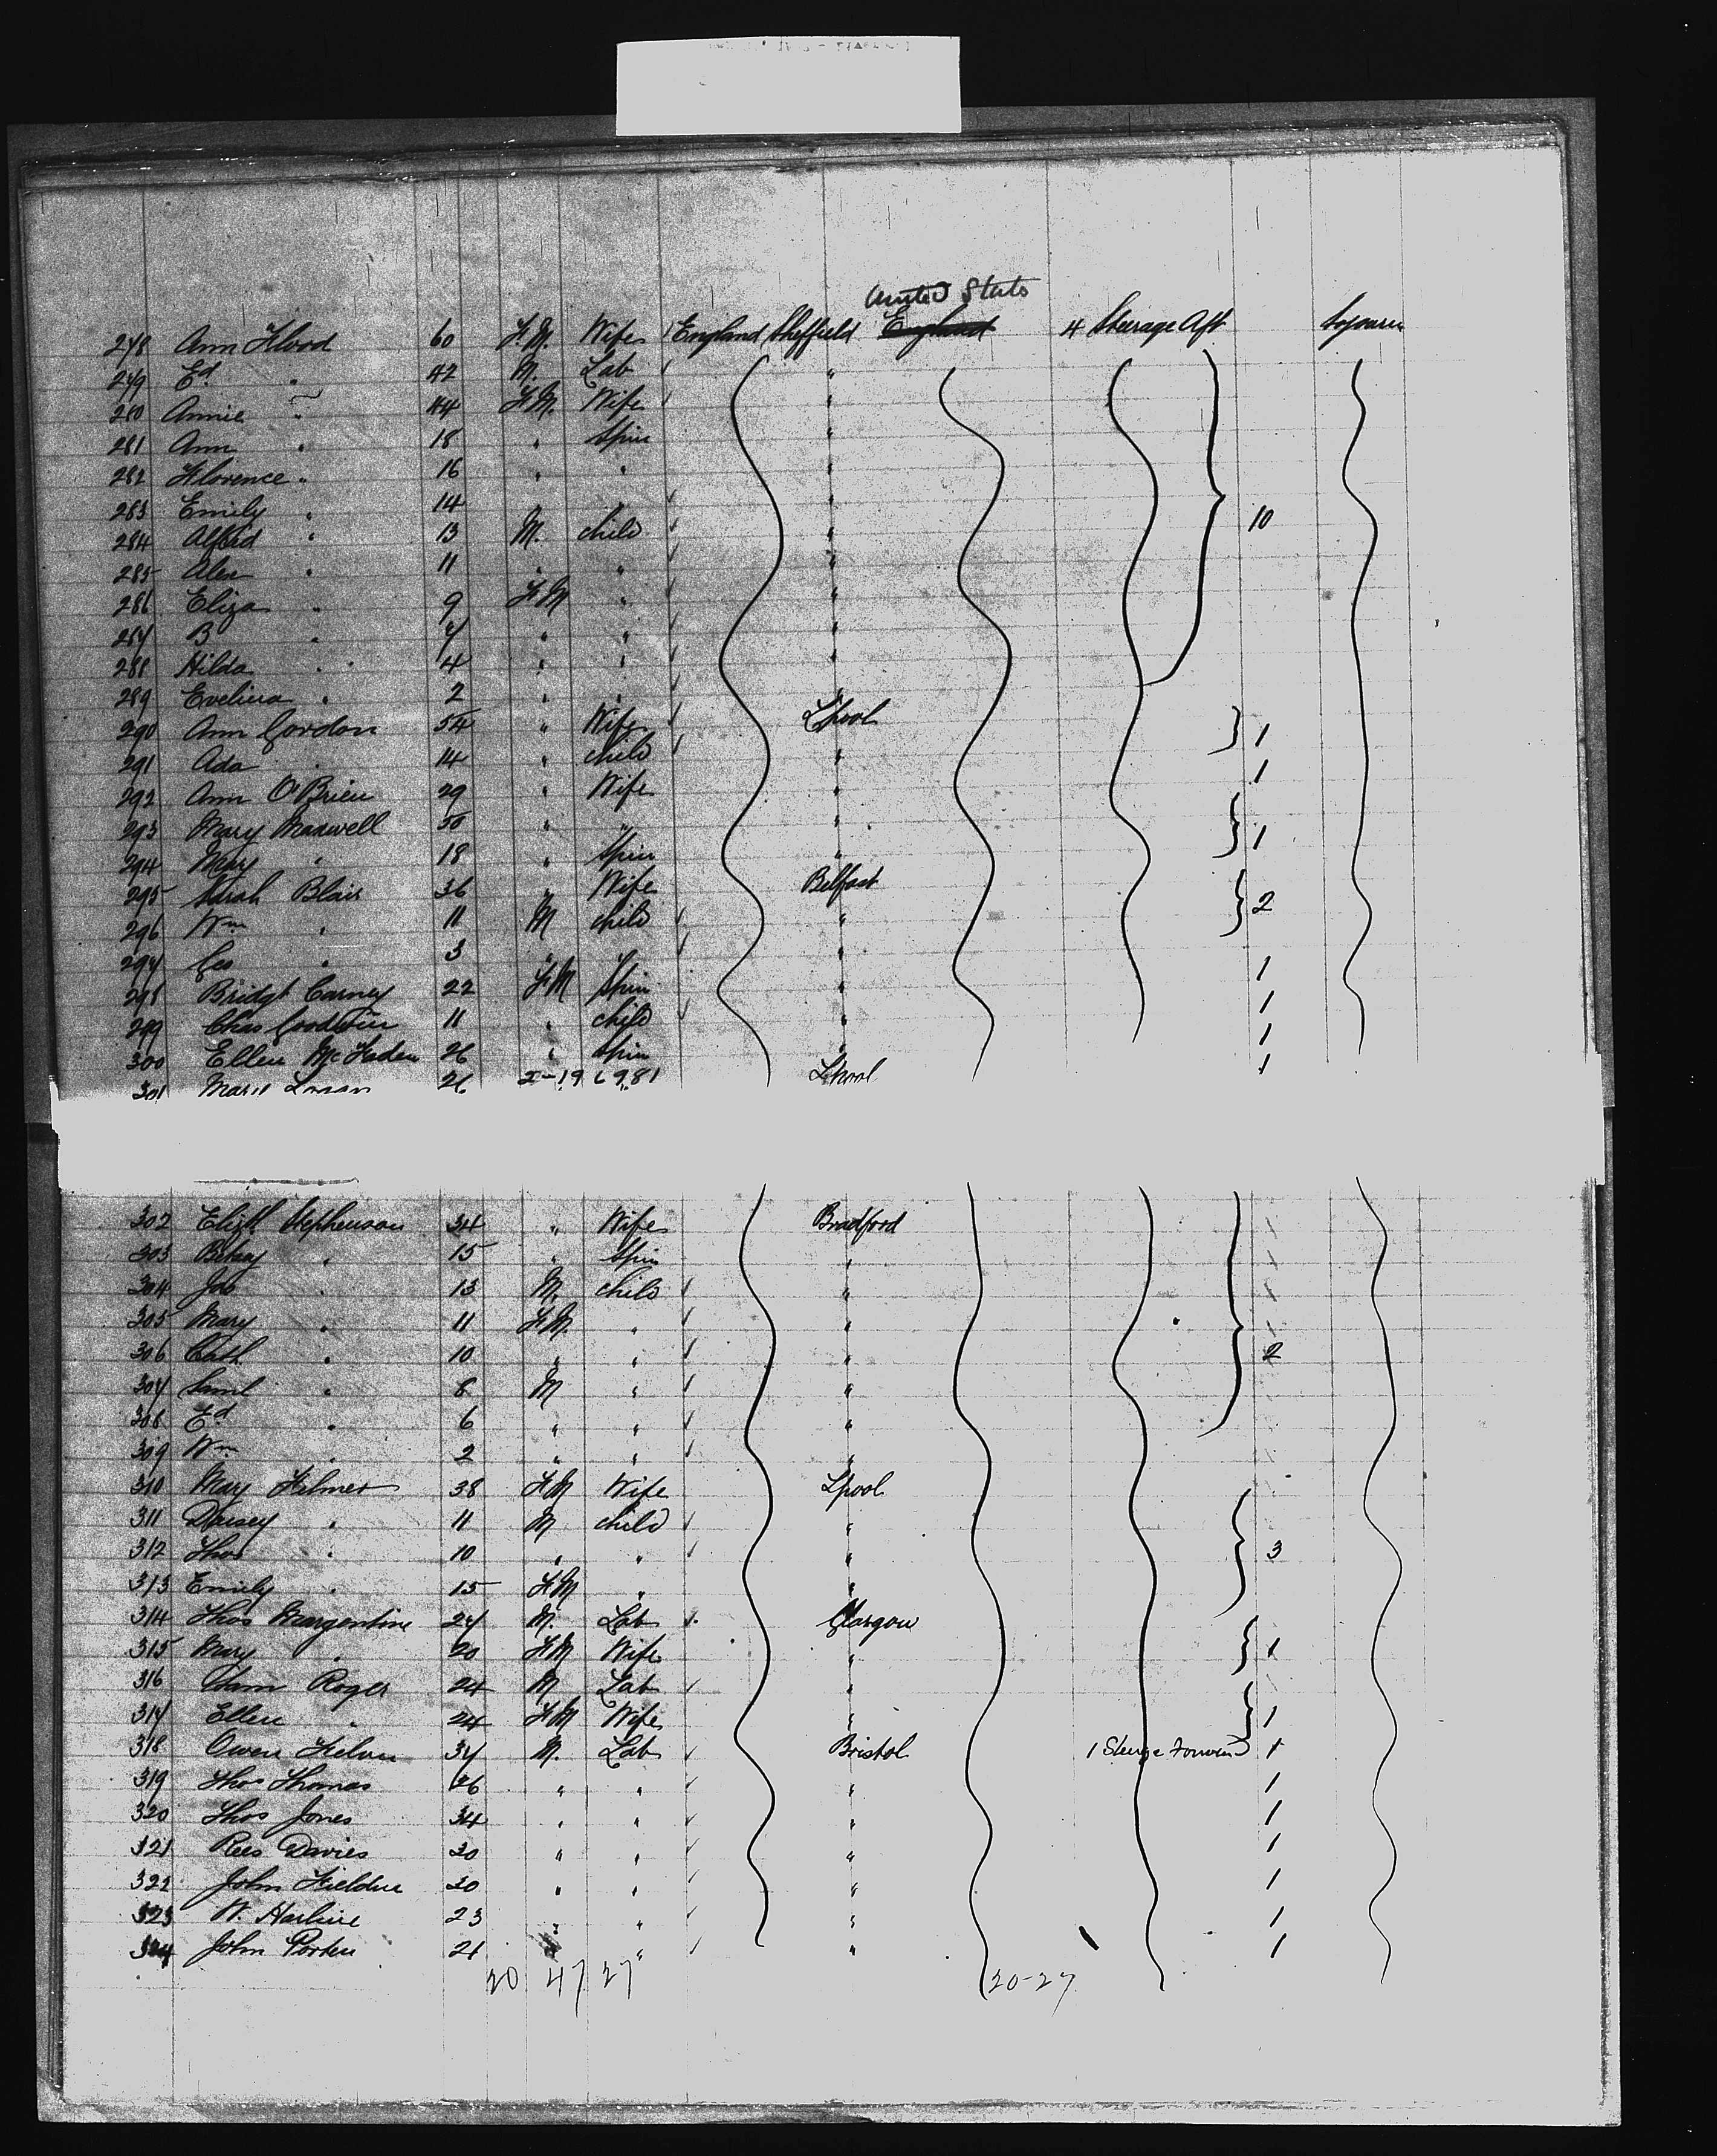 United States
278 Ann Flood 60 F.M. Wife England Sheffield England 4 Steerage Aft Sojourn
279 Ed " 42 M. Lab "
280 Annie " 44 F.M. Wife "
281 Ann " 18 " Spin "
282 Florence " 16 " " "
283 Emily " 14 " "
284 Alfred " 13 M. child " 10
285 Alex " 11 " " "
286 Eliza " 9 F M " "
287 B " 7 " " "
288 Hilda " 4 " " "
289 Evelina " 2 " " "
290 Ann Gordon 54 " Wife L'pool } 1
291 Ada " 14 " child "
292 Ann O'Brien 29 " Wife " 1
293 Mary Maxwell 50 " " " } 1
294 Mary " 18 " Spin "
295 Sarah Blair 36 " Wife Belfast } 2
296 Wm " 11 M child "
297 Geo " 3 " " "
298 Bridgt Carney 22 F M Spin " 1
299 Chas Goodwin 11 " child " 1
300 Ellen McFaden 26 " Spin " 1
301 26 L'pool 1
302 Elizth Stephenson 34 " Wife Bradford
303 Betsy " 15 " Spin "
304 Job " 13 M. child "
305 Mary " 11 F.M. " "
306 Cath " 10 " " " 2
307 Saml " 8 M " "
308 Ed " 6 " " "
309 Wm " 2 " " "
310 Mary Filmer 38 F M Wife L'pool
311 " 11 M child "
312 Thos " 10 " " " 3
313 Emily " 15 F M " "
314 Thos Margentine 27 M. Lab Glasgow
315 Mary " 20 F M Wife " } 1
316 Roger 24 M Lab "
317 Ellen " 24 F M Wife " } 1
318 Owen 37 M. Lab Bristol 1 Steerge Forward 1
319 Thos Thomas 26 " " " 1
320 Thos Jones 34 " " " 1
321 Rees Davies 30 " " " 1
322 John Fielder 30 " " " 1
323 W. 23 " " " 1
324 John 21 " " " 1
20 47 27 20-27